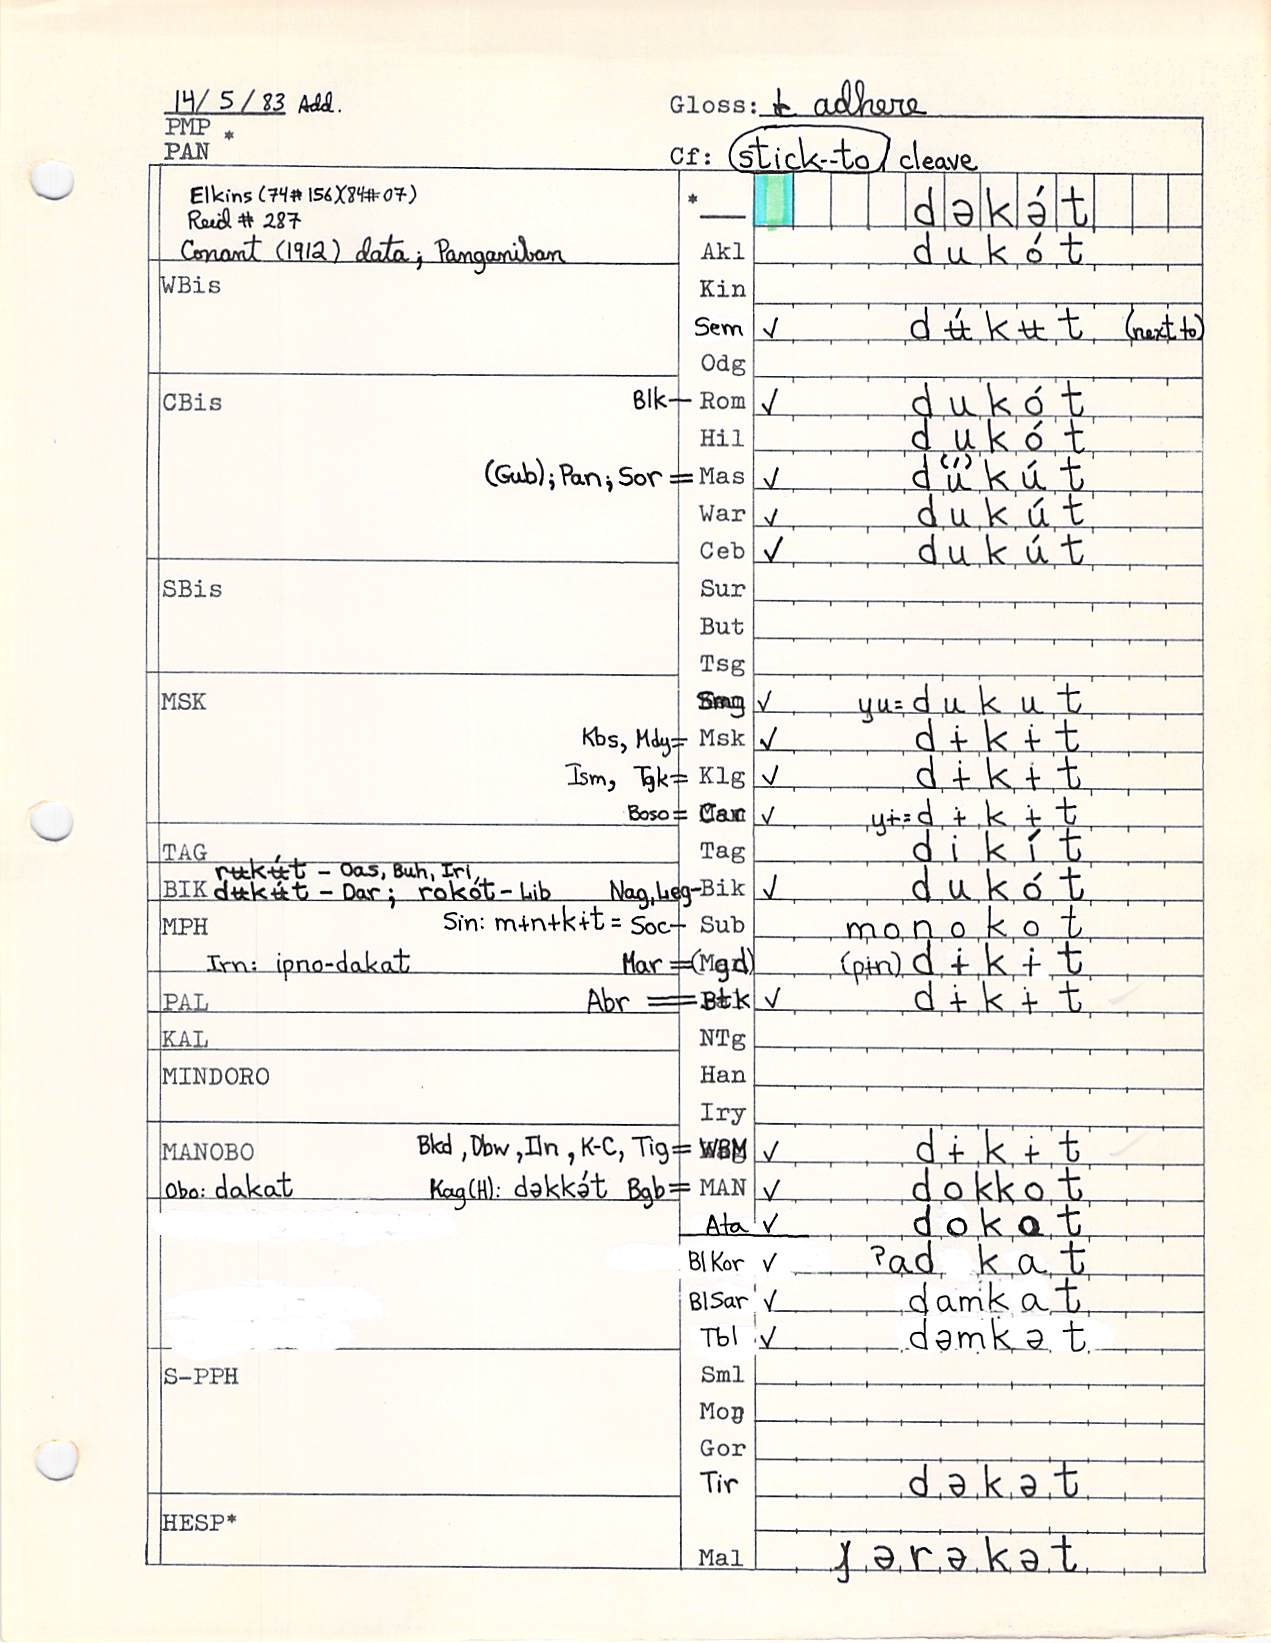 14/5/83 Add.
Gloss: adhere
PMP *
PAN
Cf: stick--to, cleave
Elkins (74# 156)(84#07)
Reid # 287
* ___ dəkə́t
Conant (1912) data; Panganiban
Akl dukót
WBis
Kin
Sem ✓ dʉ́kʉt (next to)
Odg
CBis Blk— Rom ✓ dukót
Hil dukót
(Gub); Pan; Sor = Mas ✓ du(/)kút
War ✓ dukút
Ceb ✓ dukút
SBis
Sur
But
Tsg
MSK ✓ yu=dukut
Kbs, Mdy= Msk ✓ dɨkɨt
Ism, Tgk= Klg ✓ dɨkɨt
Boso= ✓ yɨ=dɨkɨt
TAG Tag dikít
rʉkʉ́t – Oas, Buh, Iri,
BIK dʉkʉ́t – Dar; rokót – Lib Nag, Leg– Bik ✓ dukót
MPH Sin: mɨnɨkɨt = Soc– Sub monokot
Irn: ipno-dakat Mar =(Mgd) (pɨn) dɨkɨt
PAL Abr = Btk ✓ dɨkɨt
KAL NTg
MINDORO Han
Iry
MANOBO Bkd, Dbw, Iln, K-C, Tig= WBM ✓ dɨkɨt
Obo: dakat Kag(H): dəkkə́t Bgb= MAN ✓ dokkot
Ata ✓ dokot
BlKor ✓ ʔad kat
BlSar ✓ damkat
Tbl ✓ dəmkət
S-PPH Sml
Mong
Gor
Tir dəkət
HESP*
Mal ərəkət